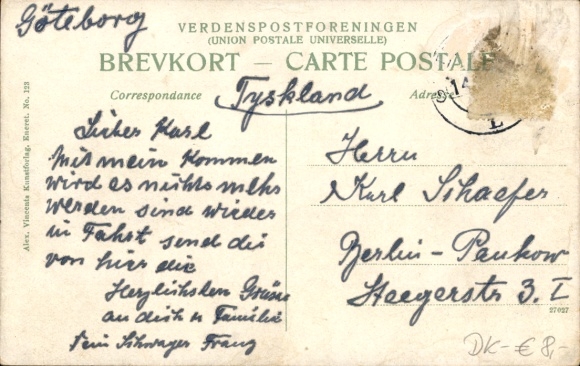 Göteborg
VERDENSPOSTFORENINGEN
(UNION POSTALE UNIVERSELLE)
BREVKORT — CARTE POSTALE
Correspondance
Tyskland
Adresse
Lieber Karl
Mit mein Kommen
wird es nichts mehr
werden sind wieder
in Fahrt send dir
von hier die
Herzlichsten Grüsse
an dich u Familie
Dein Schwager Franz
Herrn
Karl Schaefer
Berlin-Pankow
Steegerstr 3. I
27027
Alex. Vincents Kunstforlag. Eneret. No. 123
DK-€8,-